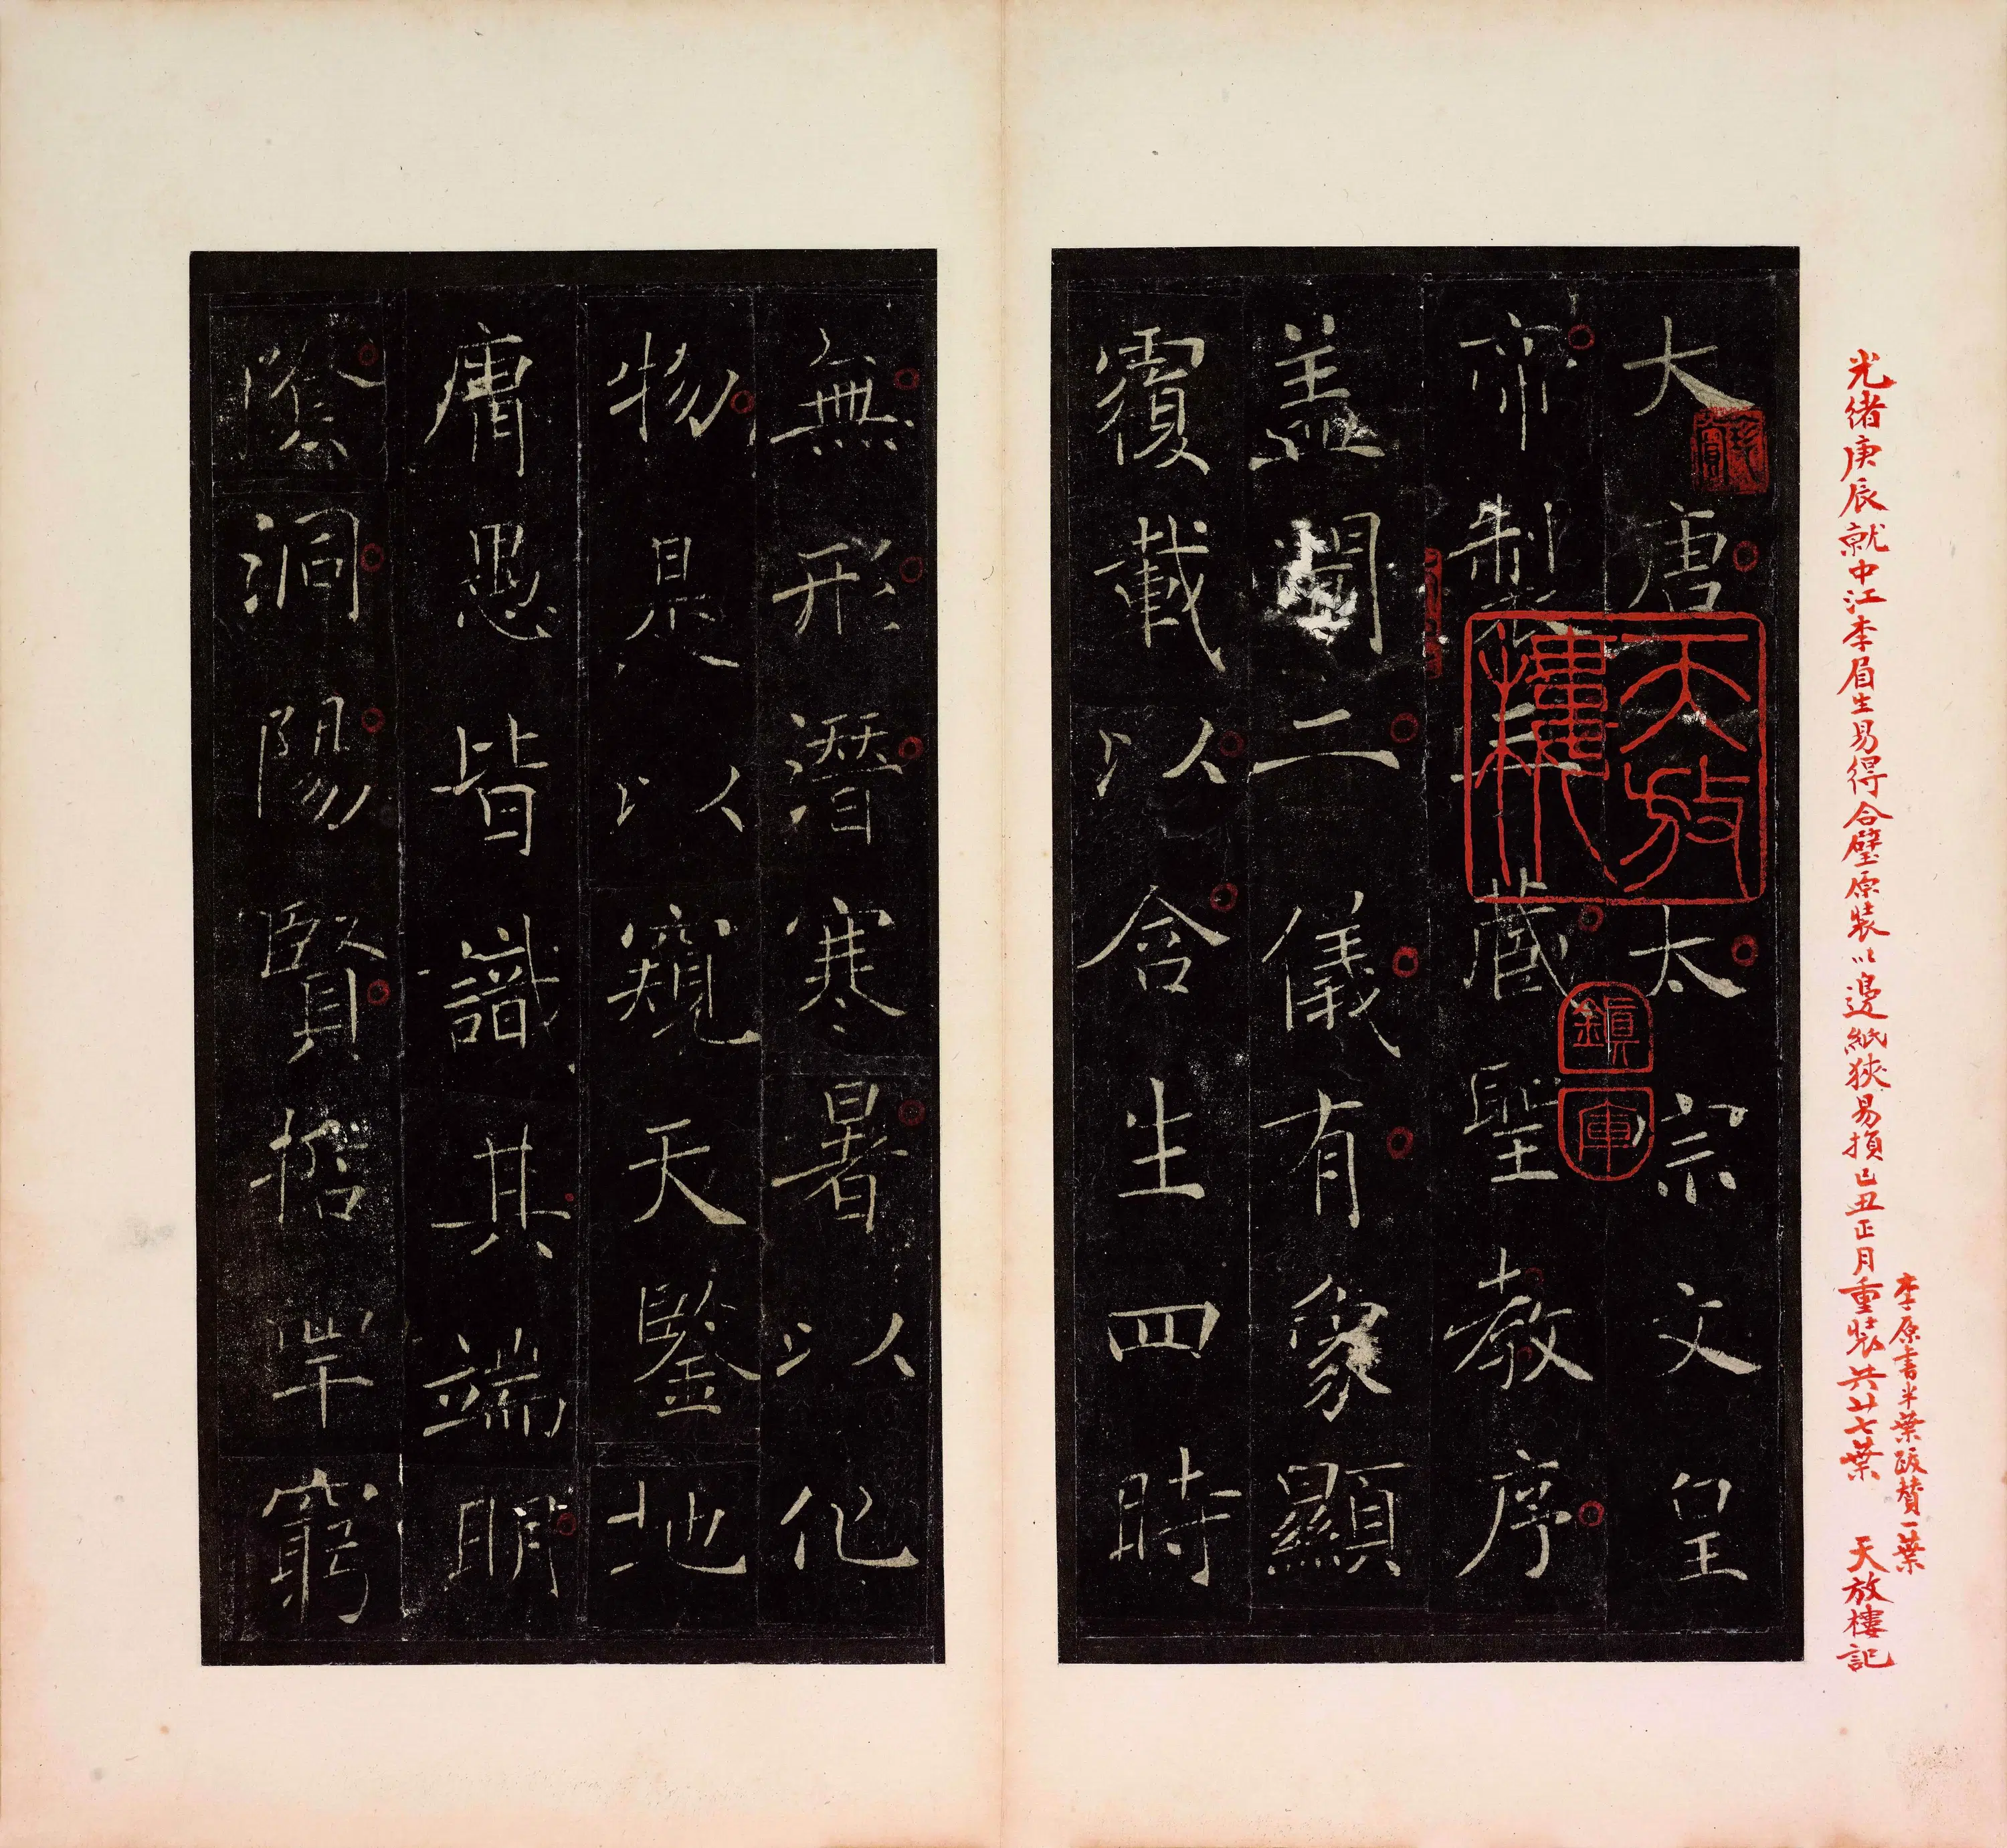 光緒庚辰就中江李眉生易得合璧原裝以邊紙狹易損己丑正月重裝共廿七葉 天放樓記
李原書半葉跋贊一葉
大唐太宗文皇
帝製三藏聖教序
盖聞二儀有象顯
覆載以含生四時
無形潛寒暑以化
物是以窺天鑒地
庸愚皆識其端明
陰洞陽賢哲罕窮
天放樓
鎮庫